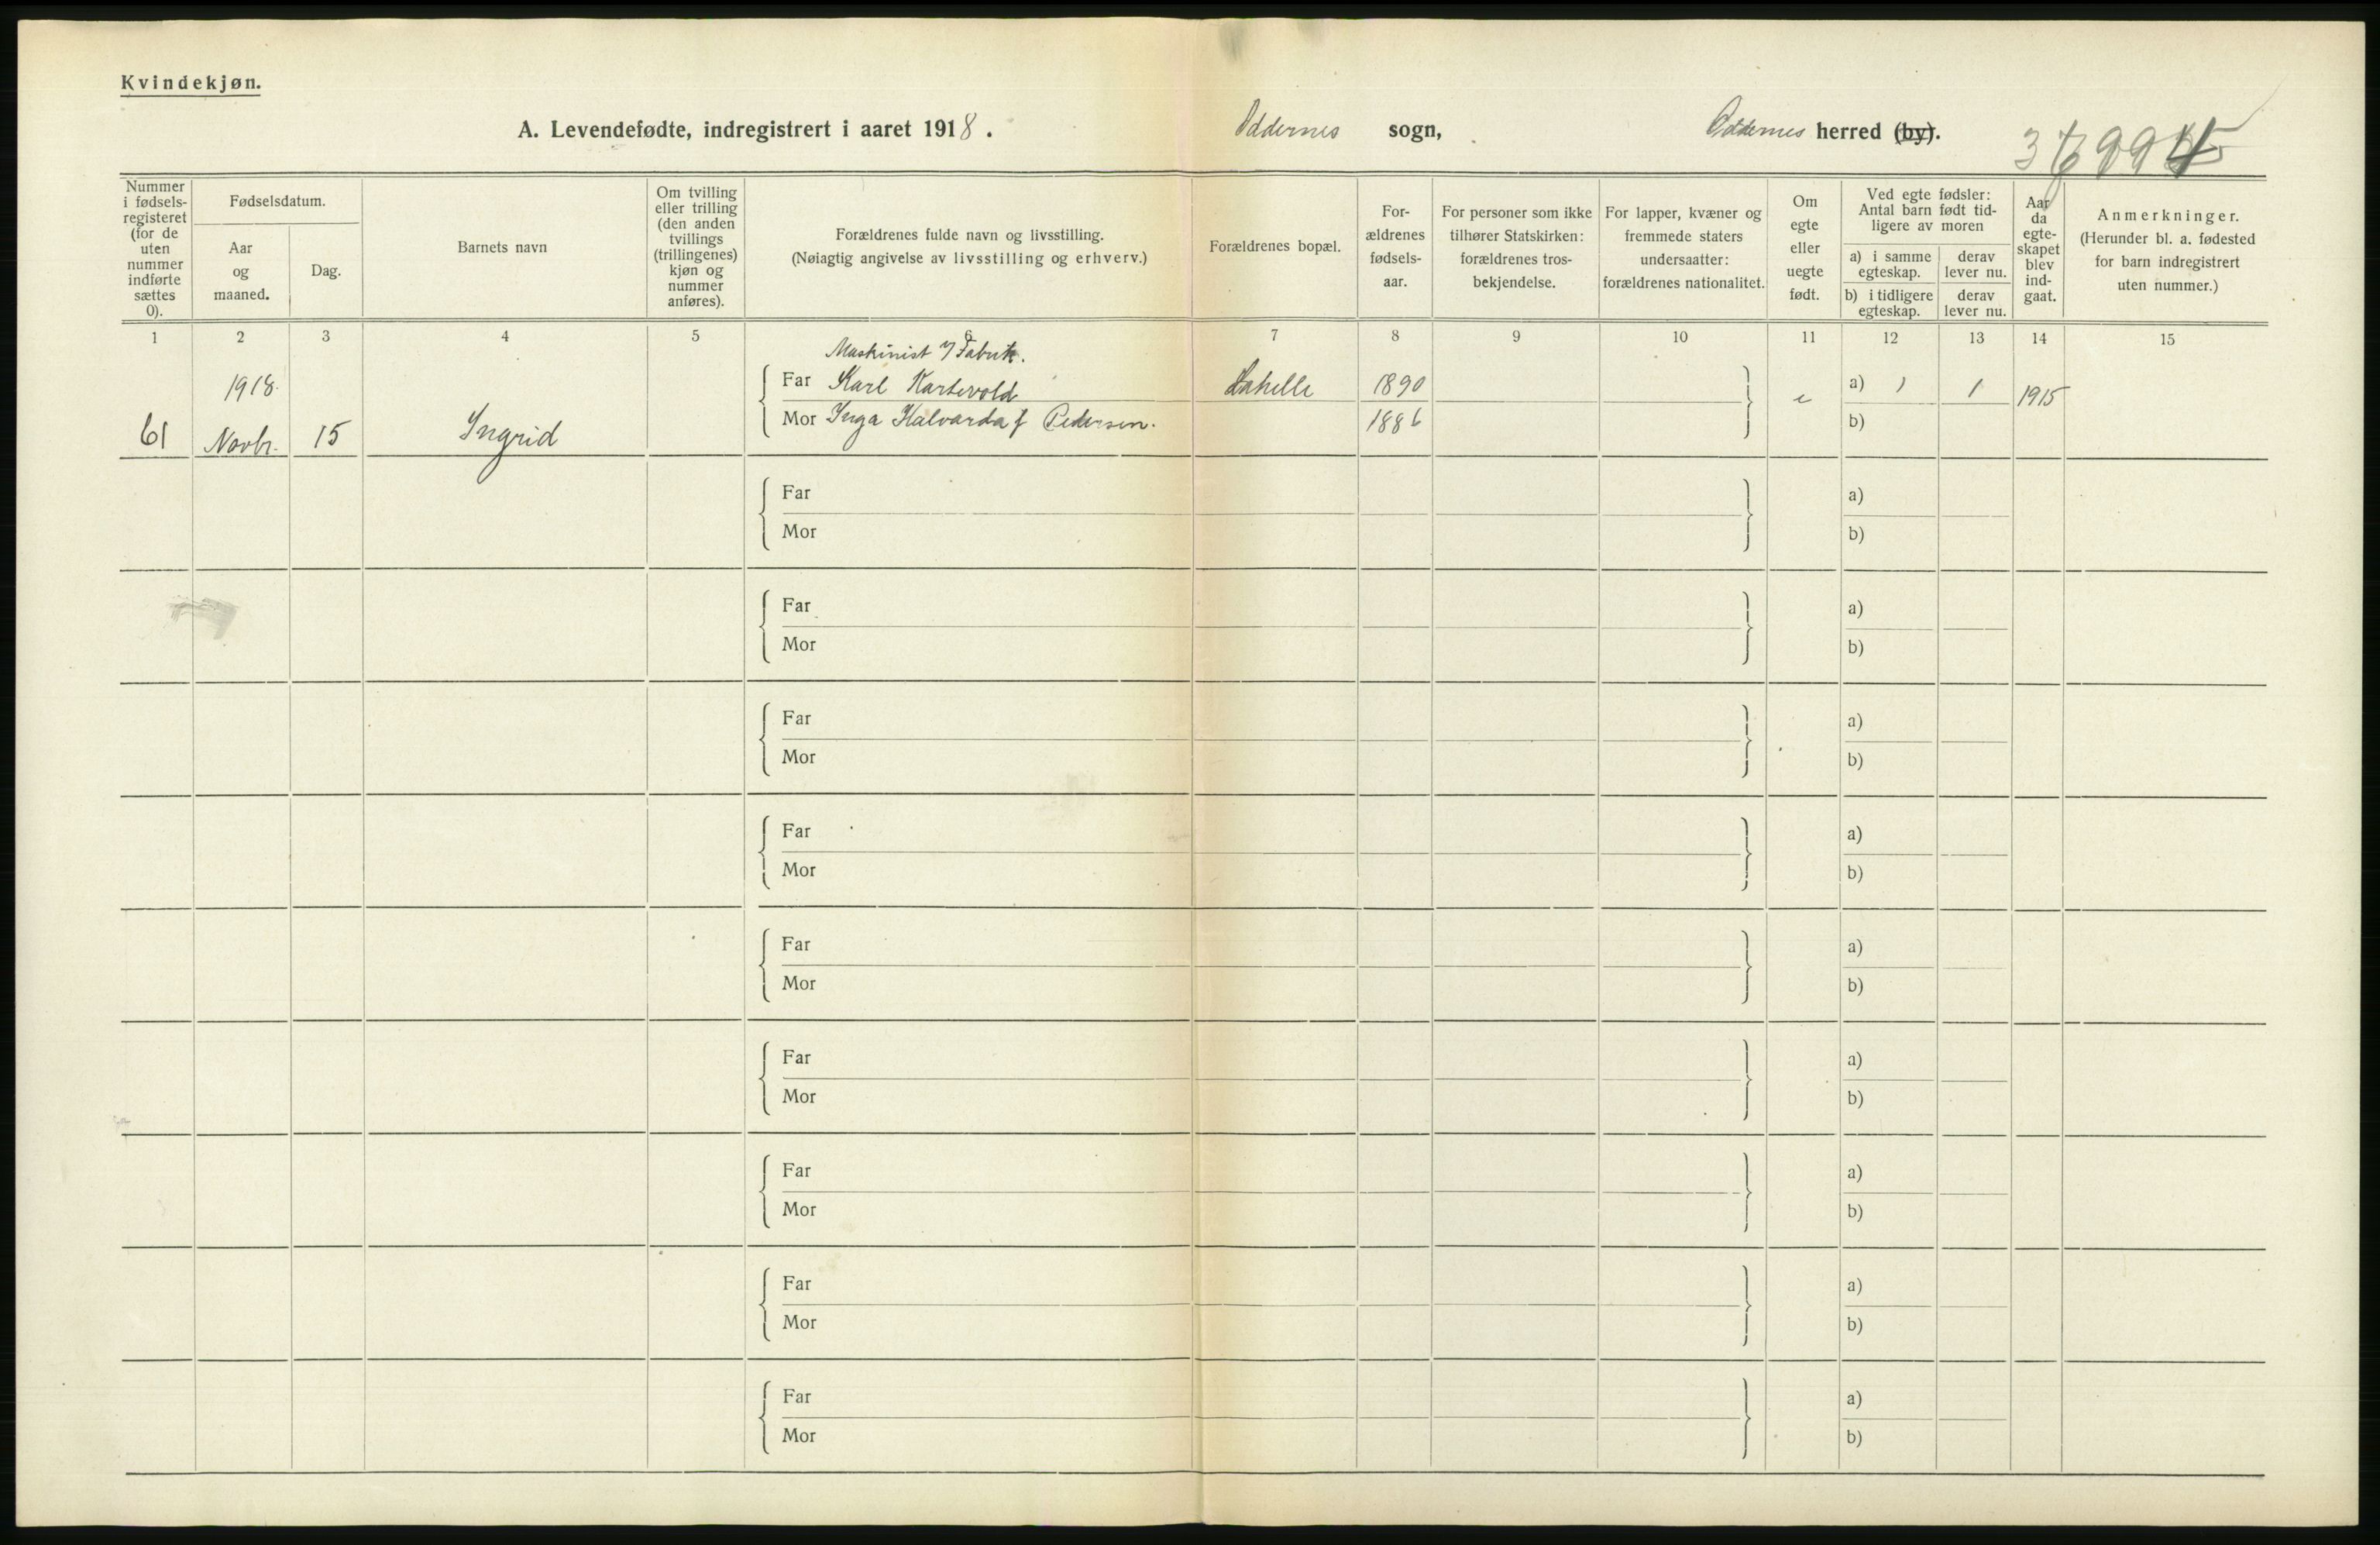 Kvindekjøn.
A. Levendefødte, indregistrert i aaret 1918. Oddernes sogn, Oddernes herred (by).
Nummer i fødselsregisteret (for de uten nummer indførte sættes 0).
Fødselsdatum.
Aar og maaned.
Dag.
Barnets navn
Om tvilling eller trilling (den anden tvillings (trillingenes) kjøn og nummer anføres).
Forældrenes fulde navn og livsstilling.
(Nøiagtig angivelse av livsstilling og erhverv.)
Forældrenes bopæl.
Forældrenes fødselsaar.
For personer som ikke tilhører Statskirken: forældrenes trosbekjendelse.
For lapper, kvæner og fremmede staters undersaatter: forældrenes nationalitet.
Om egte eller uegte født.
Ved egte fødsler: Antal barn født tidligere av moren
a) i samme egteskap.
derav lever nu.
b) i tidligere egteskap.
derav lever nu.
Aar da egteskapet blev indgaat.
Anmerkninger.
(Herunder bl. a. fødested for barn indregistrert uten nummer.)
1 2 3 4 5 6 7 8 9 10 11 12 13 14 15
Maskinist Fabrik.
1918. Far Karl Kartevold 1890 e a) 1 1 1915
61 Novbr. 15 Ingrid Mor Inga Halvarda f Pedersen. 1886 b)
Far a)
Mor b)
Far a)
Mor b)
Far a)
Mor b)
Far a)
Mor b)
Far a)
Mor b)
Far a)
Mor b)
Far a)
Mor b)
Far a)
Mor b)
Far a)
Mor b)